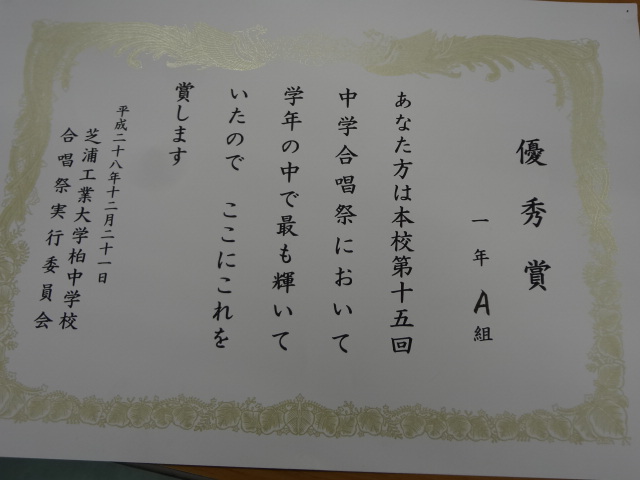 優秀賞
一年A組
あなた方は本校第十五回
中学合唱祭において
学年の中で最も輝いて
いたので ここにこれを
賞します
平成二十八年十二月二十一日
芝浦工業大学柏中学校
合唱祭実行委員会